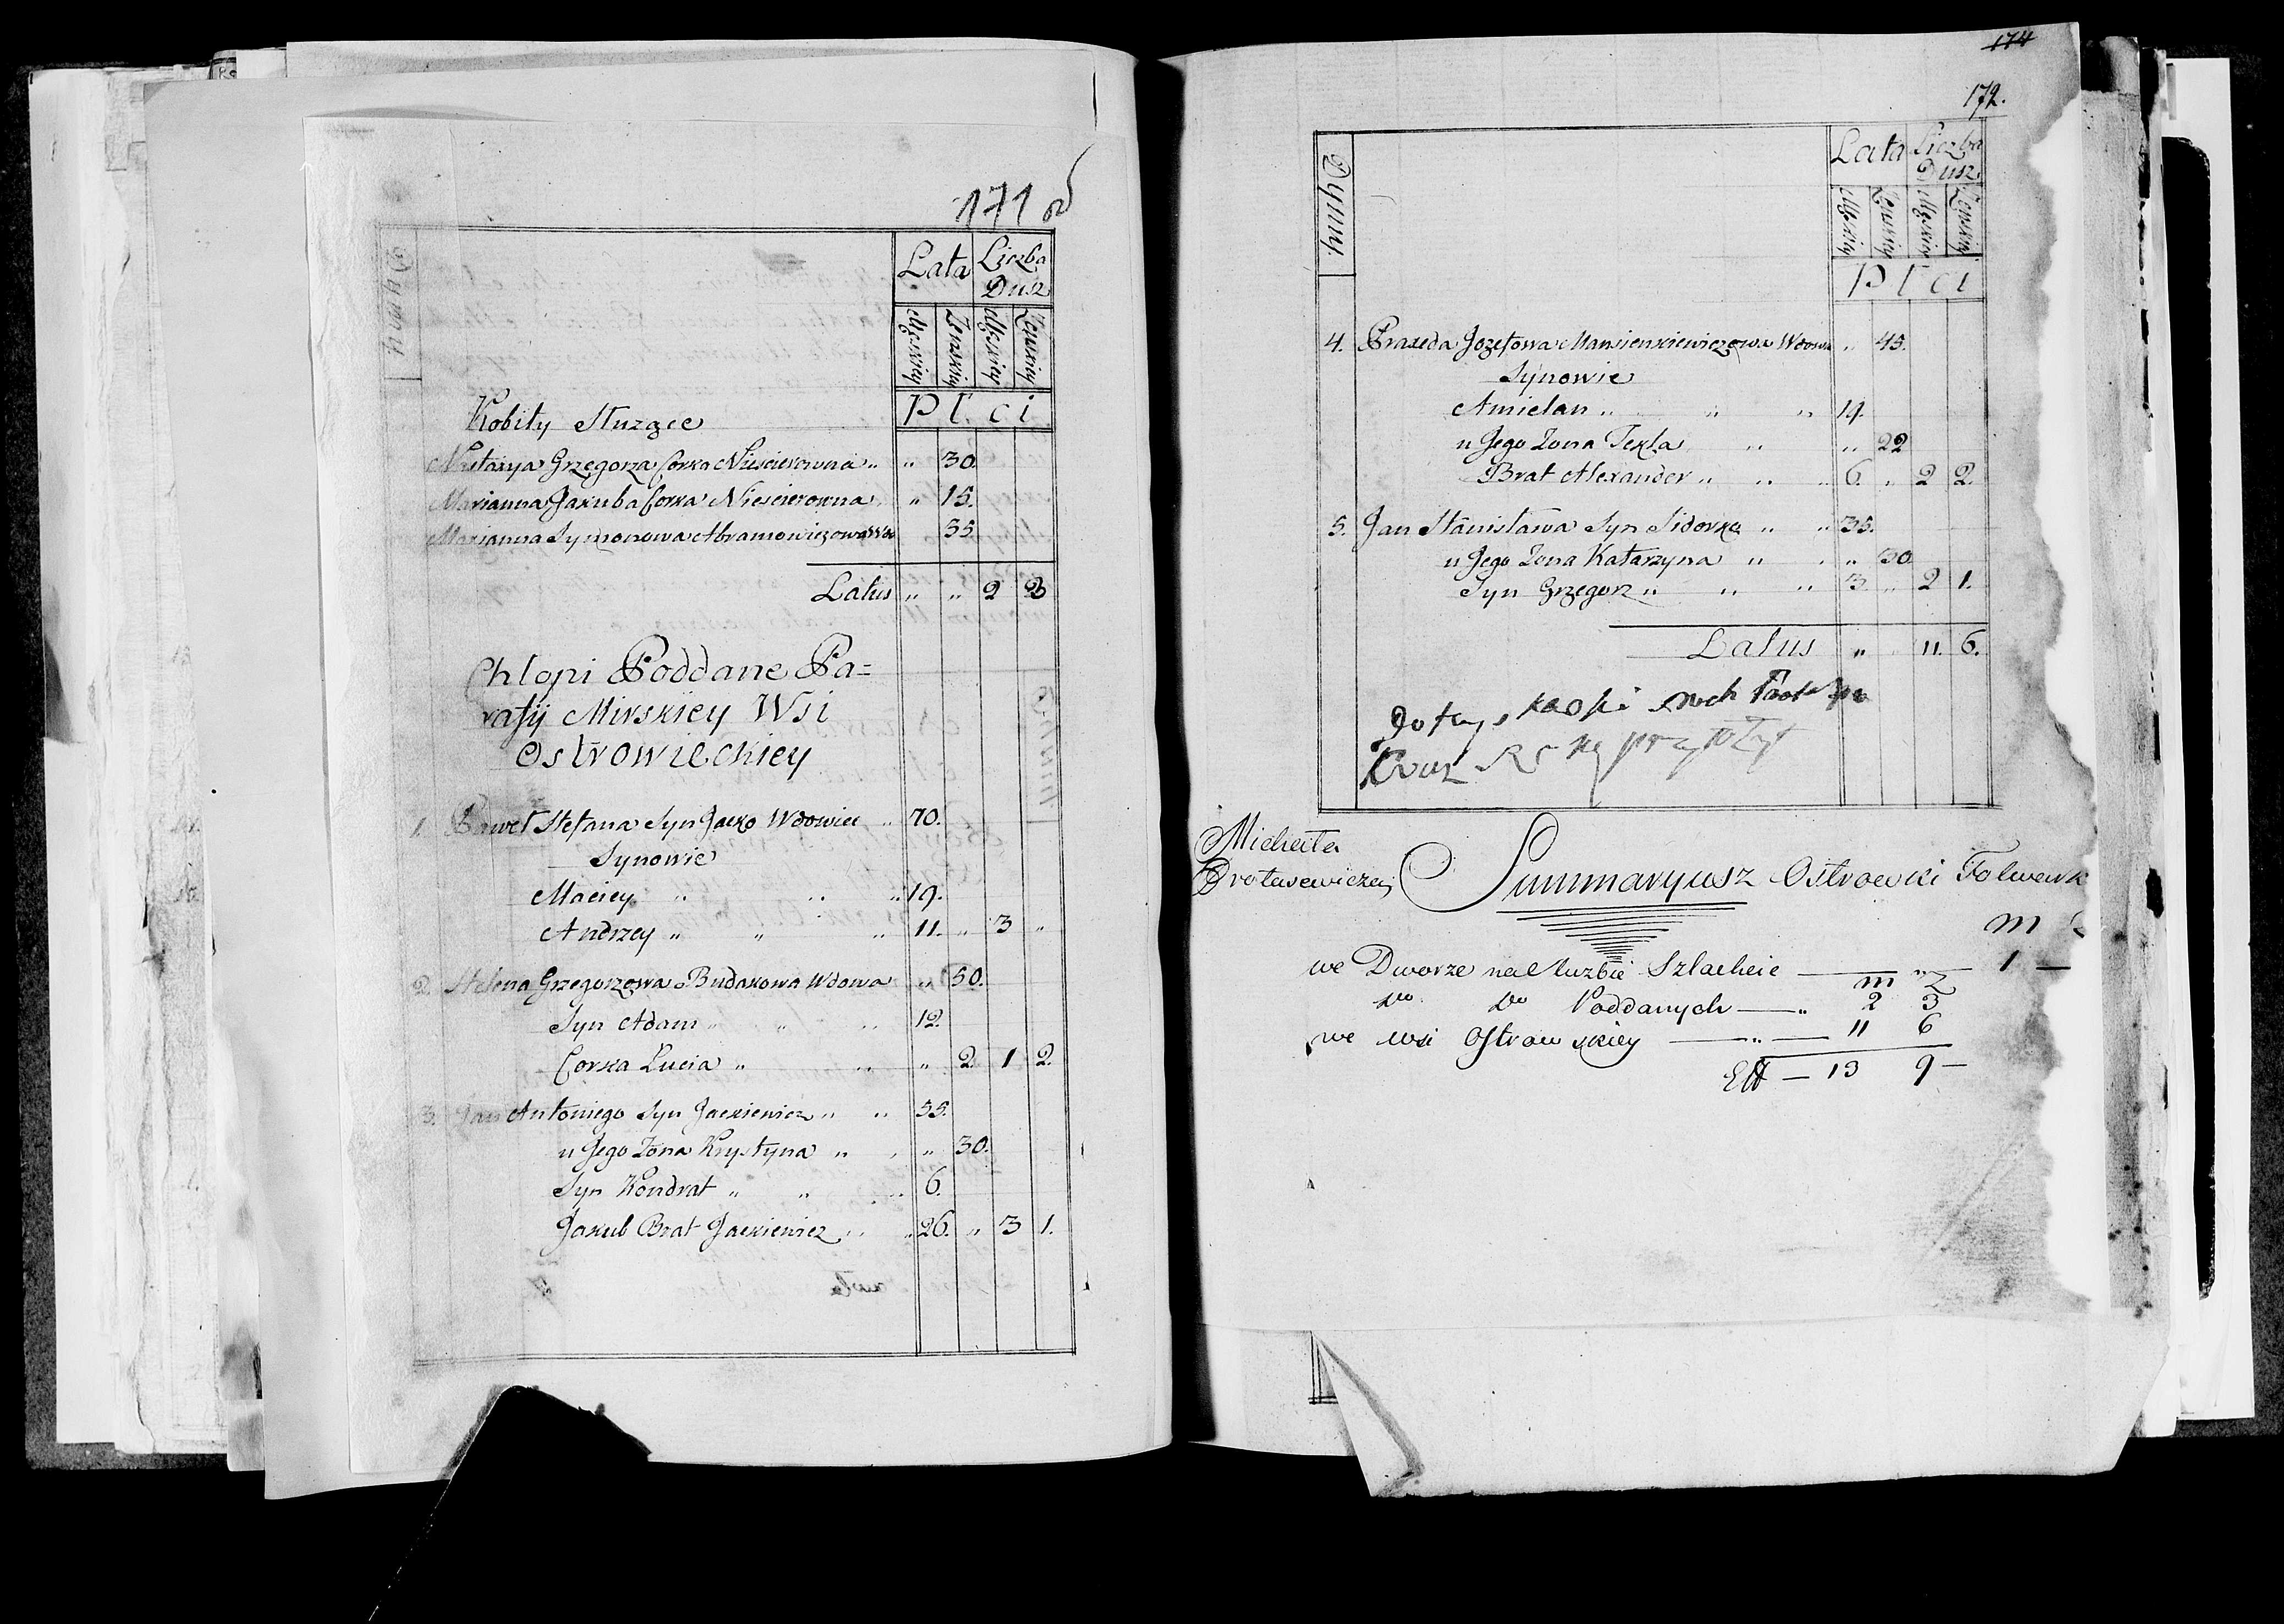 171
Dymy
Lata Liczba Dusz
Męskiey Żeńskiey Męskiey Żeńskiey
Płci
Kobity Służące
Nastazya Grzegorza Corka Niescierowna „ „ 30.
Marianna Jakuba Corka Niescierowna „ „ 15.
Marianna Symonowa Abramowiczowa 35.
Latus „ „ 2 3
Chłopi Poddane Pa=
rafij Mirskiey Wsi
Ostrowieckiey
1. Paweł Stefana Syn Jacko Wdowiec „ 70.
Synowie
Maciey „ „ „ 19.
Andrzey „ „ „ 11. „ 3 „
2. Helena Grzegorzowa Budakowa Wdowa „ 50.
Syn Adam „ „ „ 12.
Corka Lucia „ „ „ 2. 1 2.
3. Jan Antoniego Syn Jackiewicz „ „ 35.
u Jego Żona Krystyna „ „ „ 30.
Syn Kondrat „ „ „ 6.
Jakub Brat Jackiewicz „ „ 26. „ 3 1.
174
172.
Dymy.
Lata Liczba Dusz.
Męskiey Żeńskiey Męskiey Żeńskiey
Płci
4. Praxeda Jozefowa Mansienkiewiczowa Wdowa „ 45.
Synowie
Amielan „ „ „ 19.
u Jego Żona Tekla „ „ 22
Brat Alexander „ „ „ 6. „ 2 2.
5. Jan Stanisława Syn Sidorka „ „ 35.
u Jego Żona Katarzyna „ „ „ 30.
Syn Grzegorz „ „ „ 3. „ 2 1.
Latus „ „ 11. 6.
Do tey skaski
Krzyż Ręką przyłożył
Michała
Protasewicza
Summaryusz Ostrowki Folwark
m
we Dworze na Służbie Szlachcie — „ — 1 —
m Ż
do do Poddanych — „ 2 3
we wsi Ostrowskiey — „ — 11 6
Ett — 13 9 —